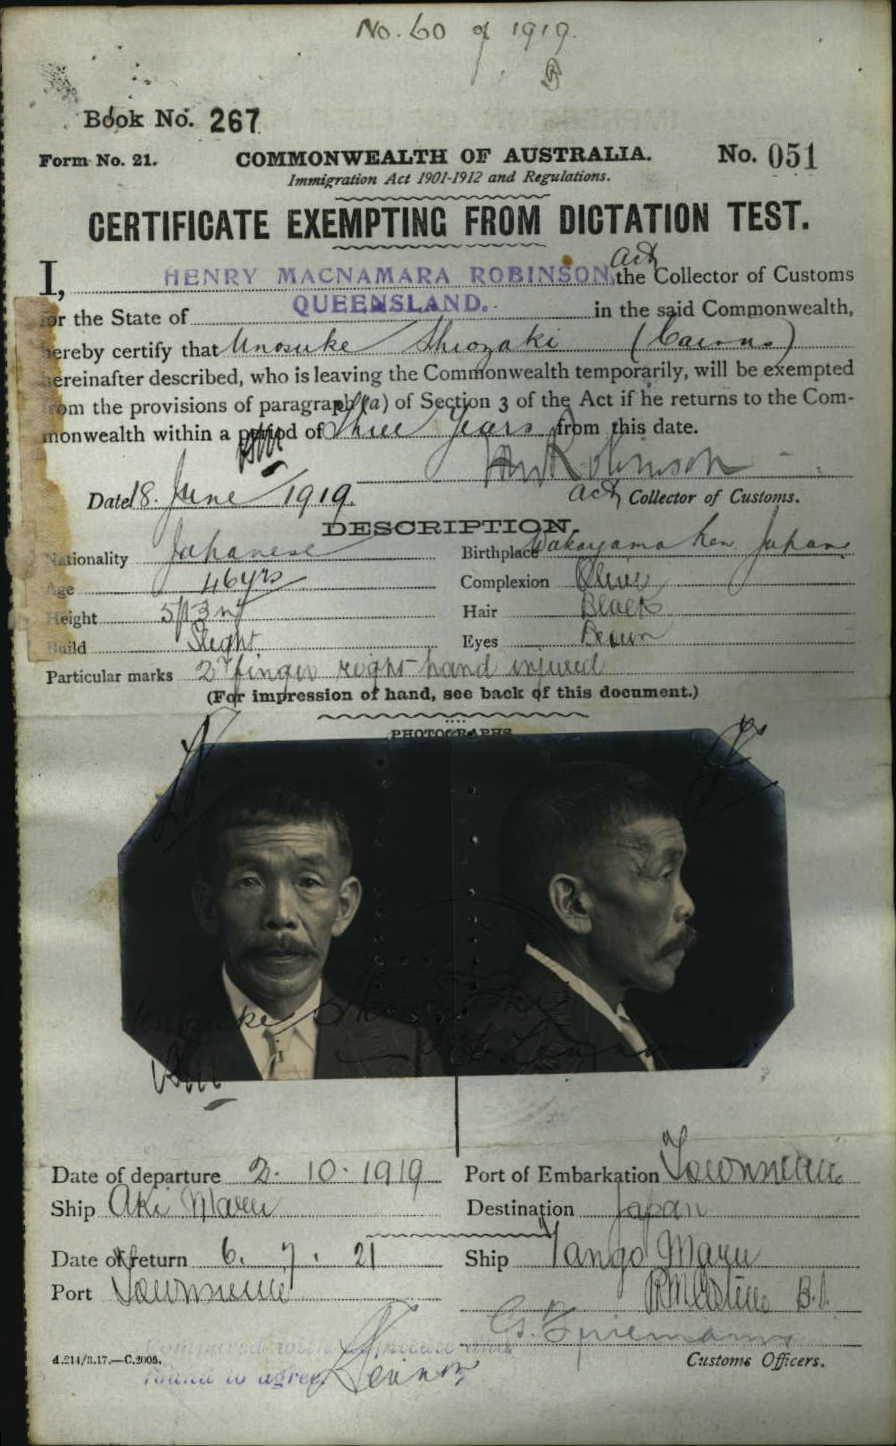 No. 60 of 1919.
Book No. 267
Form No. 21. COMMONWEALTH OF AUSTRALIA. No. 051
Immigration Act 1901-1912 and Regulations.
CERTIFICATE EXEMPTING FROM DICTATION TEST.
I, HENRY MACNAMARA ROBINSON, actg the Collector of Customs
for the State of QUEENSLAND. in the said Commonwealth,
hereby certify that Unosuke Shiozaki (Cairns)
hereinafter described, who is leaving the Commonwealth temporarily, will be exempted
from the provisions of paragraph (a) of Section 3 of the Act if he returns to the Com-
monwealth within a period of Three Years from this date.
HM Robinson
Date 18 June 1919. Actg Collector of Customs.
DESCRIPTION.
Nationality Japanese Birthplace Wakayama Ken Japan
Age 46 yrs Complexion Olive
Height 5ft 3 in Hair Black
Build Slight Eyes Brown
Particular marks 2nd finger right hand injured
(For impression of hand, see back of this document.)
PHOTOGRAPHS
Unosuke Shiozaki
Date of departure 2. 10. 1919 Port of Embarkation Townsville
Ship Aki Maru Destination Japan
Date of return 6. 7. 21 Ship Tango Maru
Port Townsville
Customs Officers.
d.214/3.17.—C.2005.
found to agree